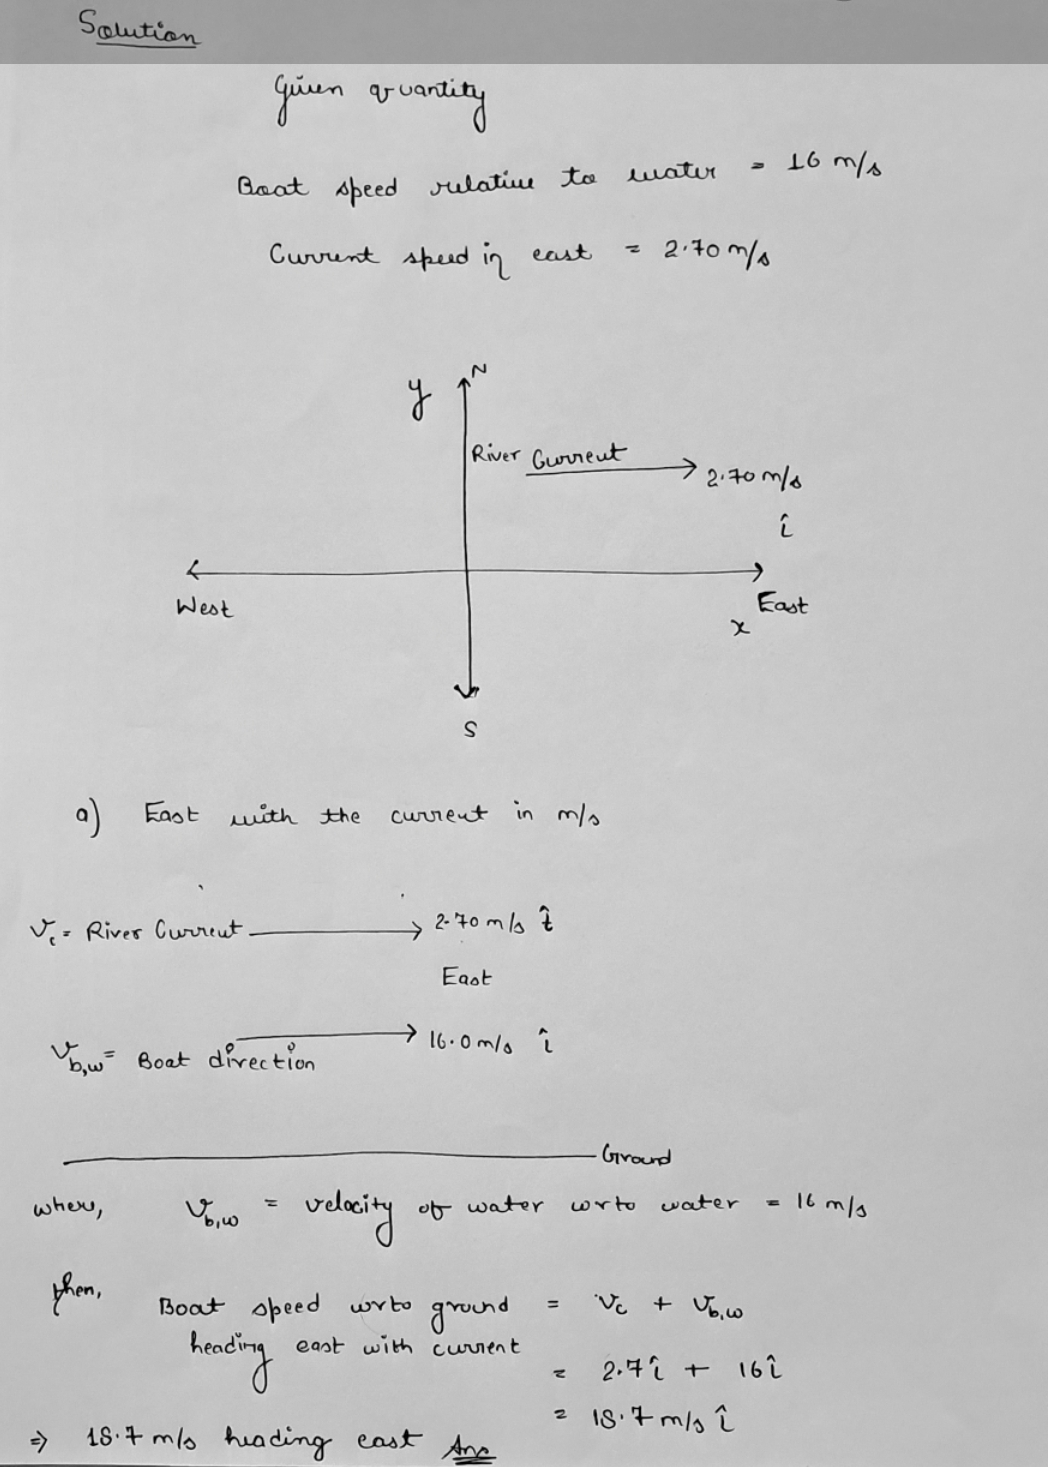 Solution
Given quantity
Boat speed relative to water = 16 m/s
Current speed in east = 2.70 m/s
N
y
River Current
2.70 m/s
î
West
East
x
S
a) East with the current in m/s
Vc = River Current 2.70 m/s î
East
Vb,w = Boat direction 16.0 m/s î
Ground
where, Vb,w = velocity of water wrto water = 16 m/s
then, Boat speed wrto ground = Vc + Vb,w
heading east with current
= 2.7î + 16î
= 18.7 m/s î
⇒ 18.7 m/s heading east Ans